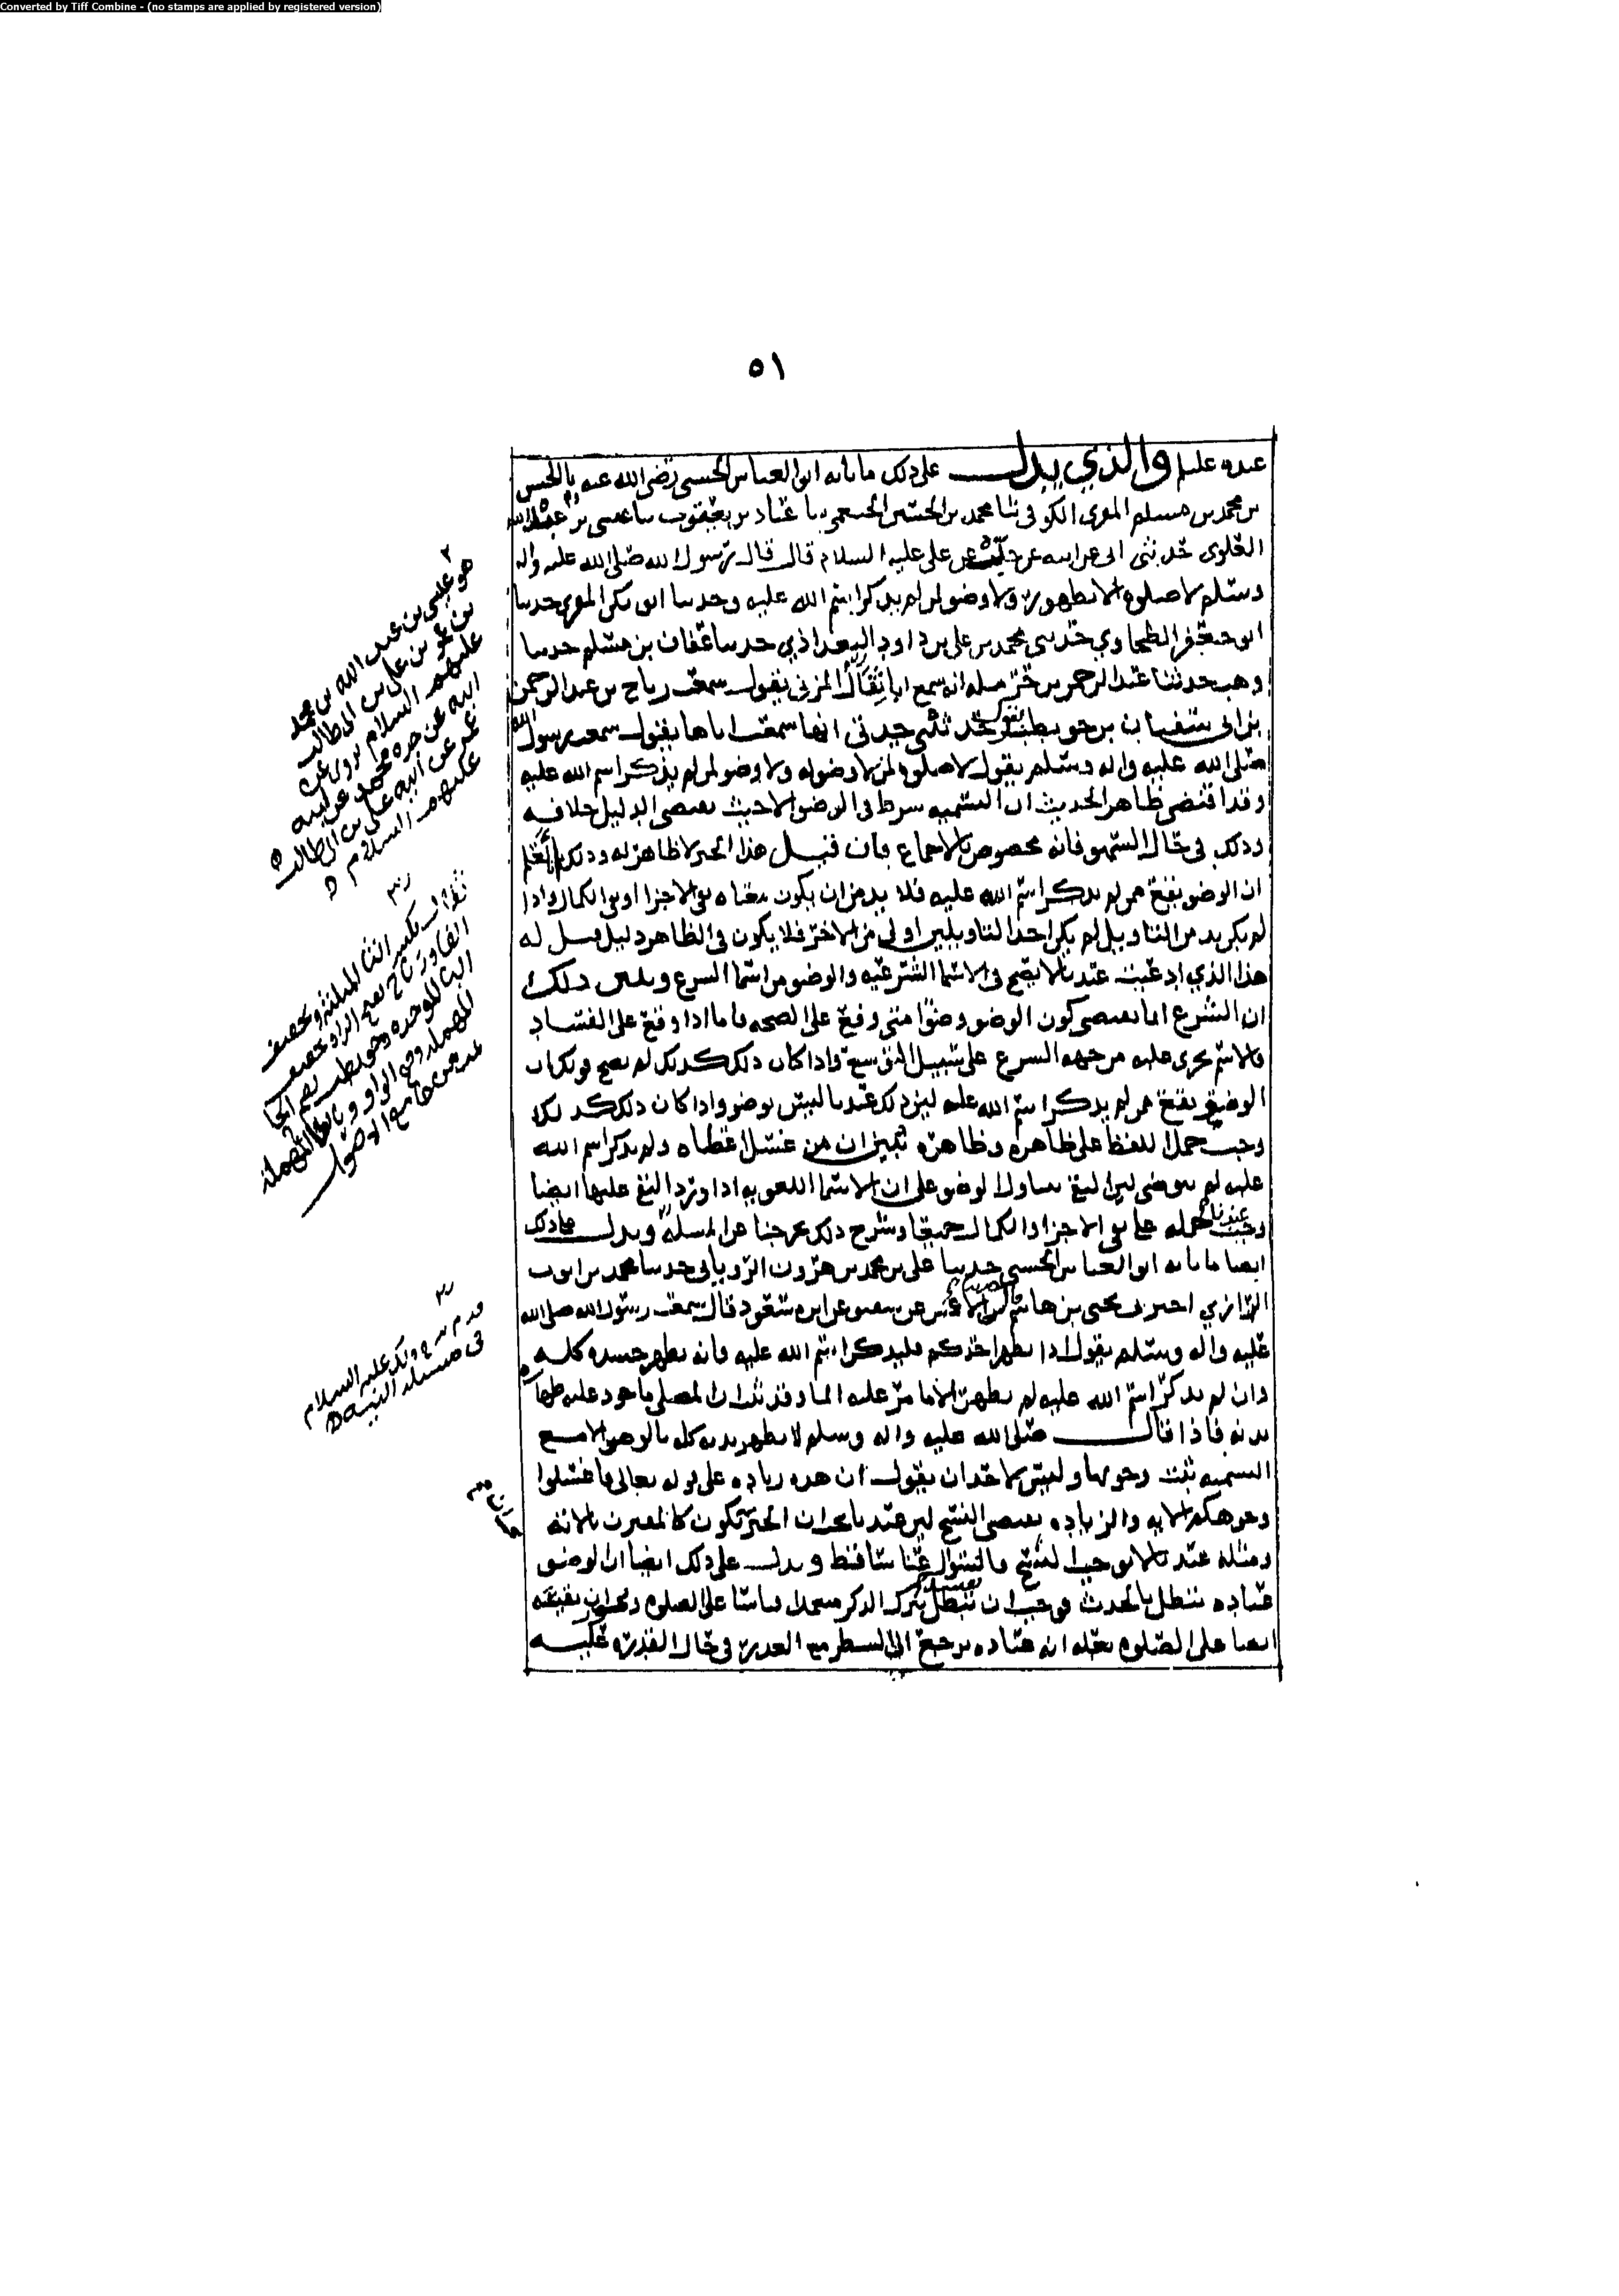 Converted by Tiff Combine - (no stamps are applied by registered version)
٥١
عنده عليه والذي يدل على ذلك ما نابه ابو العباس الحسني رضي الله عنه الحسن
بن محمد بن مسلم المقري الكوفي ثنا محمد بن الحسين الخثعمي نا عباد بن يعقوب نا عيسى بن عبد الله
العلوي حدثني ابي عن ابيه عن جده عن علي عليه السلام قال قال رسول الله صلى الله عليه واله
وسلم لا صلوة الا بطهور ولا وضو لمن لم يذكر اسم الله عليه وحدثنا ابو بكر المقري حدثنا
ابو جعفر الطحاوي حدثني محمد بن علي بن داود البغداذي حدثنا عفان بن مسلم حدثنا
وهب حدثنا عبد الرحمن بن حرمله انه سمع ابا ثفال المزني يقول سمعت رباح بن عبد الرحمن
بن ابي سفيان بن حويطب يقول حدثتني جدتي انها سمعت اباها يقول سمعت رسول الله
صلى الله عليه واله وسلم يقول لا صلوة لمن لا وضو له ولا وضو لمن لم يذكر اسم الله عليه
وقد اقتضى ظاهر الحديث ان التسميه شرط في الوضو الا حيث يقتضي الدليل خلافه
وذلك في حال السهو فانه مخصوص بالاجماع فان قيل هذا الخبر لا ظاهر له وذلك انا نعلم
ان الوضو يقع ممن لم يذكر اسم الله عليه فلا بد من ان يكون معناه نفي الاجزا او نفي الكمال واذا
لم يكن بد من التاويل لم يكن احد التاويلين اولى من الاخر فلا يكون في الظاهر دليل قيل له
هذا الذي ادعيت عندنا لا يصح في الاسما الشرعيه والوضو من اسما الشرع وبيان ذلك
ان الشرع انما يقتضي كون الوضو وضوًا متى وقع على الصحه فاما اذا وقع على الفساد
فالاسم يجري عليه من جهه الشرع على سبيل التوسع واذا كان ذلك كذلك لم يصح قولك ان
الوضو يقع ممن لم يذكر اسم الله عليه لان ذلك عندنا ليس بوضو واذا كان ذلك كذلك
وجب حمل اللفظ على ظاهره وظاهره
عليه لم يتوضى على ان الاسما اللغويه اذا ورد النفي عليها ايضا
وجب عندنا حمله على نفي الاجزا والكمال جميعا وشرح ذلك يخرجنا عن المسلة ويدل على ذلك
ايضا ما نابه ابو العباس الحسني حدثنا علي بن محمد بن هرون الروياني حدثنا محمد بن ايوب
الرازي اخبرني يحيى بن هاشم عن الاعمش عن شقيق عن ابن مسعود قال سمعت رسول الله صلى الله
عليه واله وسلم يقول اذا تطهر احدكم فليذكر اسم الله عليه فانه يطهر جسده كله
وان لم يذكر اسم الله عليه لم يطهر الا ما مر عليه الما وقد ثبت ان المصلي ماخوذ عليه طهارة
بدنه فاذا قال صلى الله عليه واله وسلم لا يطهر بدنه كله بالوضو الا مع
التسميه ثبت وجوبها وليس لاحد ان يقول ان هذه زياده على قوله تعالى فاغسلوا
وجوهكم الايه والزياده يقتضي النسخ لان عندنا يجوز ان الخبر يكون كالمقترن بالايه
ومثله عندنا لا يوجب النسخ فالسوال عنا ساقط ويدل على ذلك ايضا ان الوضو
عباده تبطل بالحدث فوجب ان تبطل بترك الذكر متعمدا قياسا على الصلوه
ايضا على الصلوه بعله انه عباده يرجع الى الشطر مع العذر في حال القدره عليه
هو عيسى بن عبد الله بن محمد
بن عمر بن علي بن ابي طالب
عليهم السلام يروي عن
ابيه عن جده محمد عن ابيه
عمر عن ابيه علي بن ابي طالب
عليهم السلام
ثفال بكسر الثا المثلثة وتخفيف
الفا ورباح بفتح الرا وتخفيف
البا الموحده وحويطب بضم الحا
المهمله وفتح الواو والطا المهملة
من جامع الاصول
في مسئلة النية